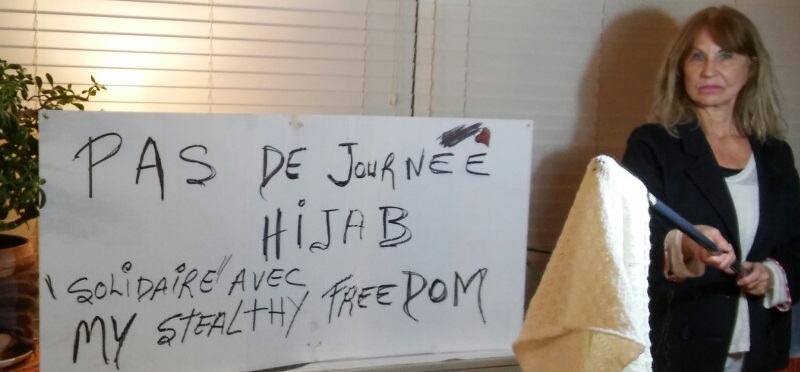 PAS DE JOURNÉE
HIJAB
"SOLIDAIRE" AVEC
MY STEALTHY FREEDOM